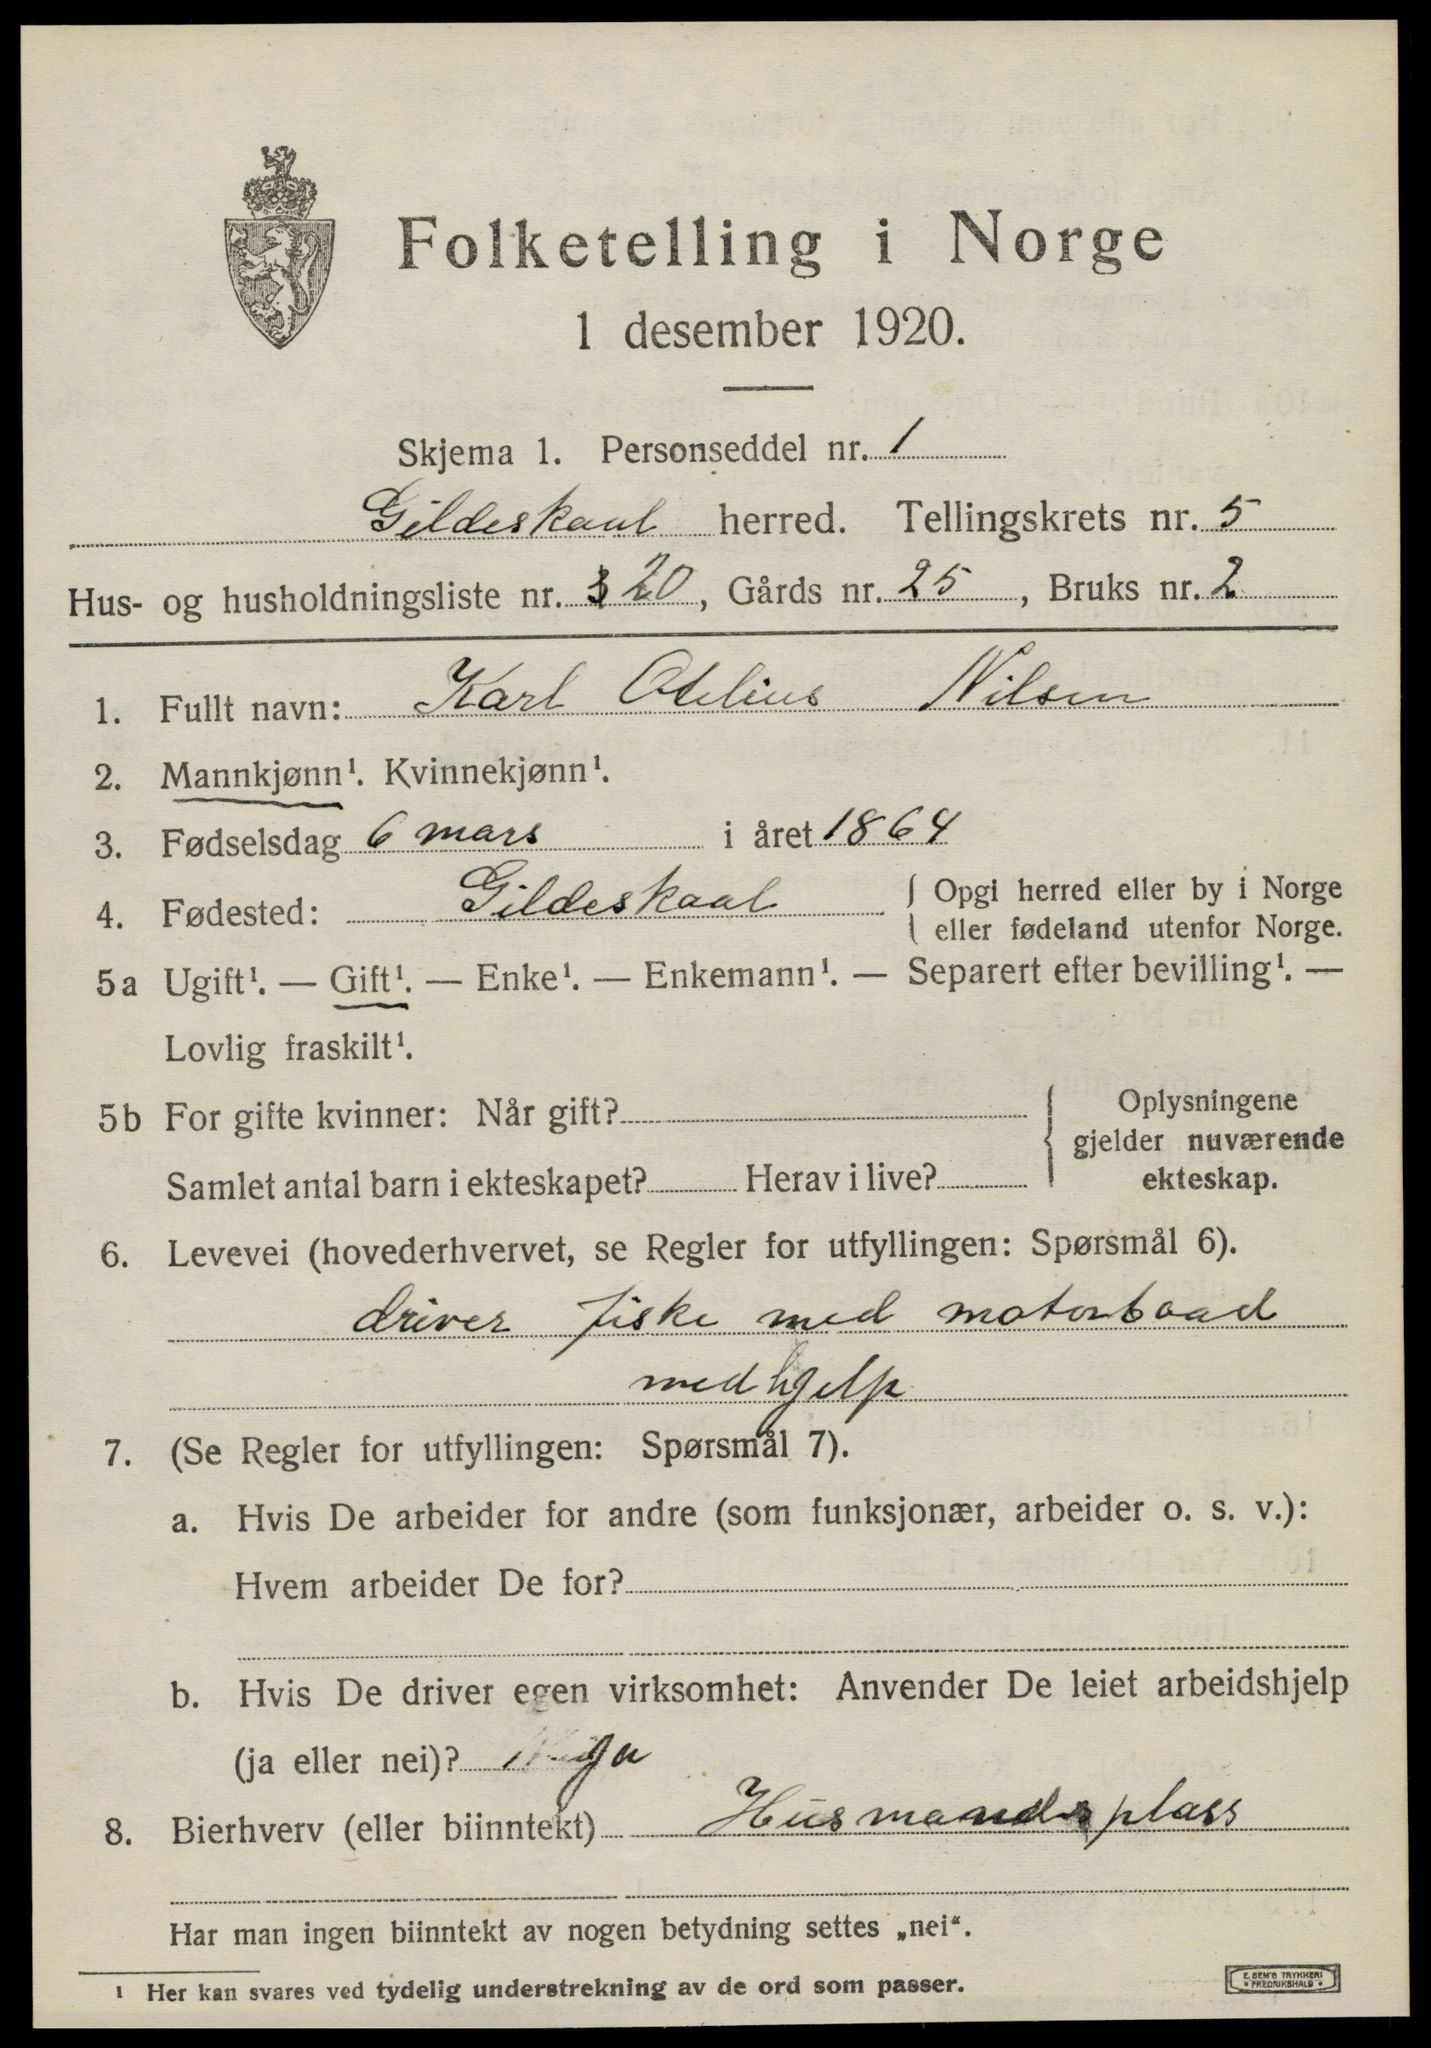 Folketelling i Norge
1 desember 1920.
Skjema 1. Personseddel nr. 1
Gildeskaal herred. Tellingskrets nr. 5
Hus- og husholdningsliste nr. 20, Gårds nr. 25, Bruks nr. 2
1. Fullt navn: Karl Otelius Nilsen
2. Mannkjønn¹. Kvinnekjønn¹.
3. Fødselsdag 6 mars i året 1864
4. Fødested: Gildeskaal { Opgi herred eller by i Norge
eller fødeland utenfor Norge.
5a Ugift¹. — Gift¹. — Enke¹. — Enkemann¹. — Separert efter bevilling¹. —
Lovlig fraskilt¹.
5b For gifte kvinner: Når gift?
Samlet antal barn i ekteskapet? Herav i live?
{ Oplysningene
gjelder nuværende
ekteskap.
6. Levevei (hovederhvervet, se Regler for utfyllingen: Spørsmål 6).
driver fiske med motorbaad
med hjelp
7. (Se Regler for utfyllingen: Spørsmål 7).
a. Hvis De arbeider for andre (som funksjonær, arbeider o. s. v.):
Hvem arbeider De for?
b. Hvis De driver egen virksomhet: Anvender De leiet arbeidshjelp
(ja eller nei)? ja
8. Bierhverv (eller biinntekt) Husmandsplass
Har man ingen biinntekt av nogen betydning settes „nei“.
¹ Her kan svares ved tydelig understrekning av de ord som passer.
E. SEM'S TRYKKERI
* FREDRIKSHALD *